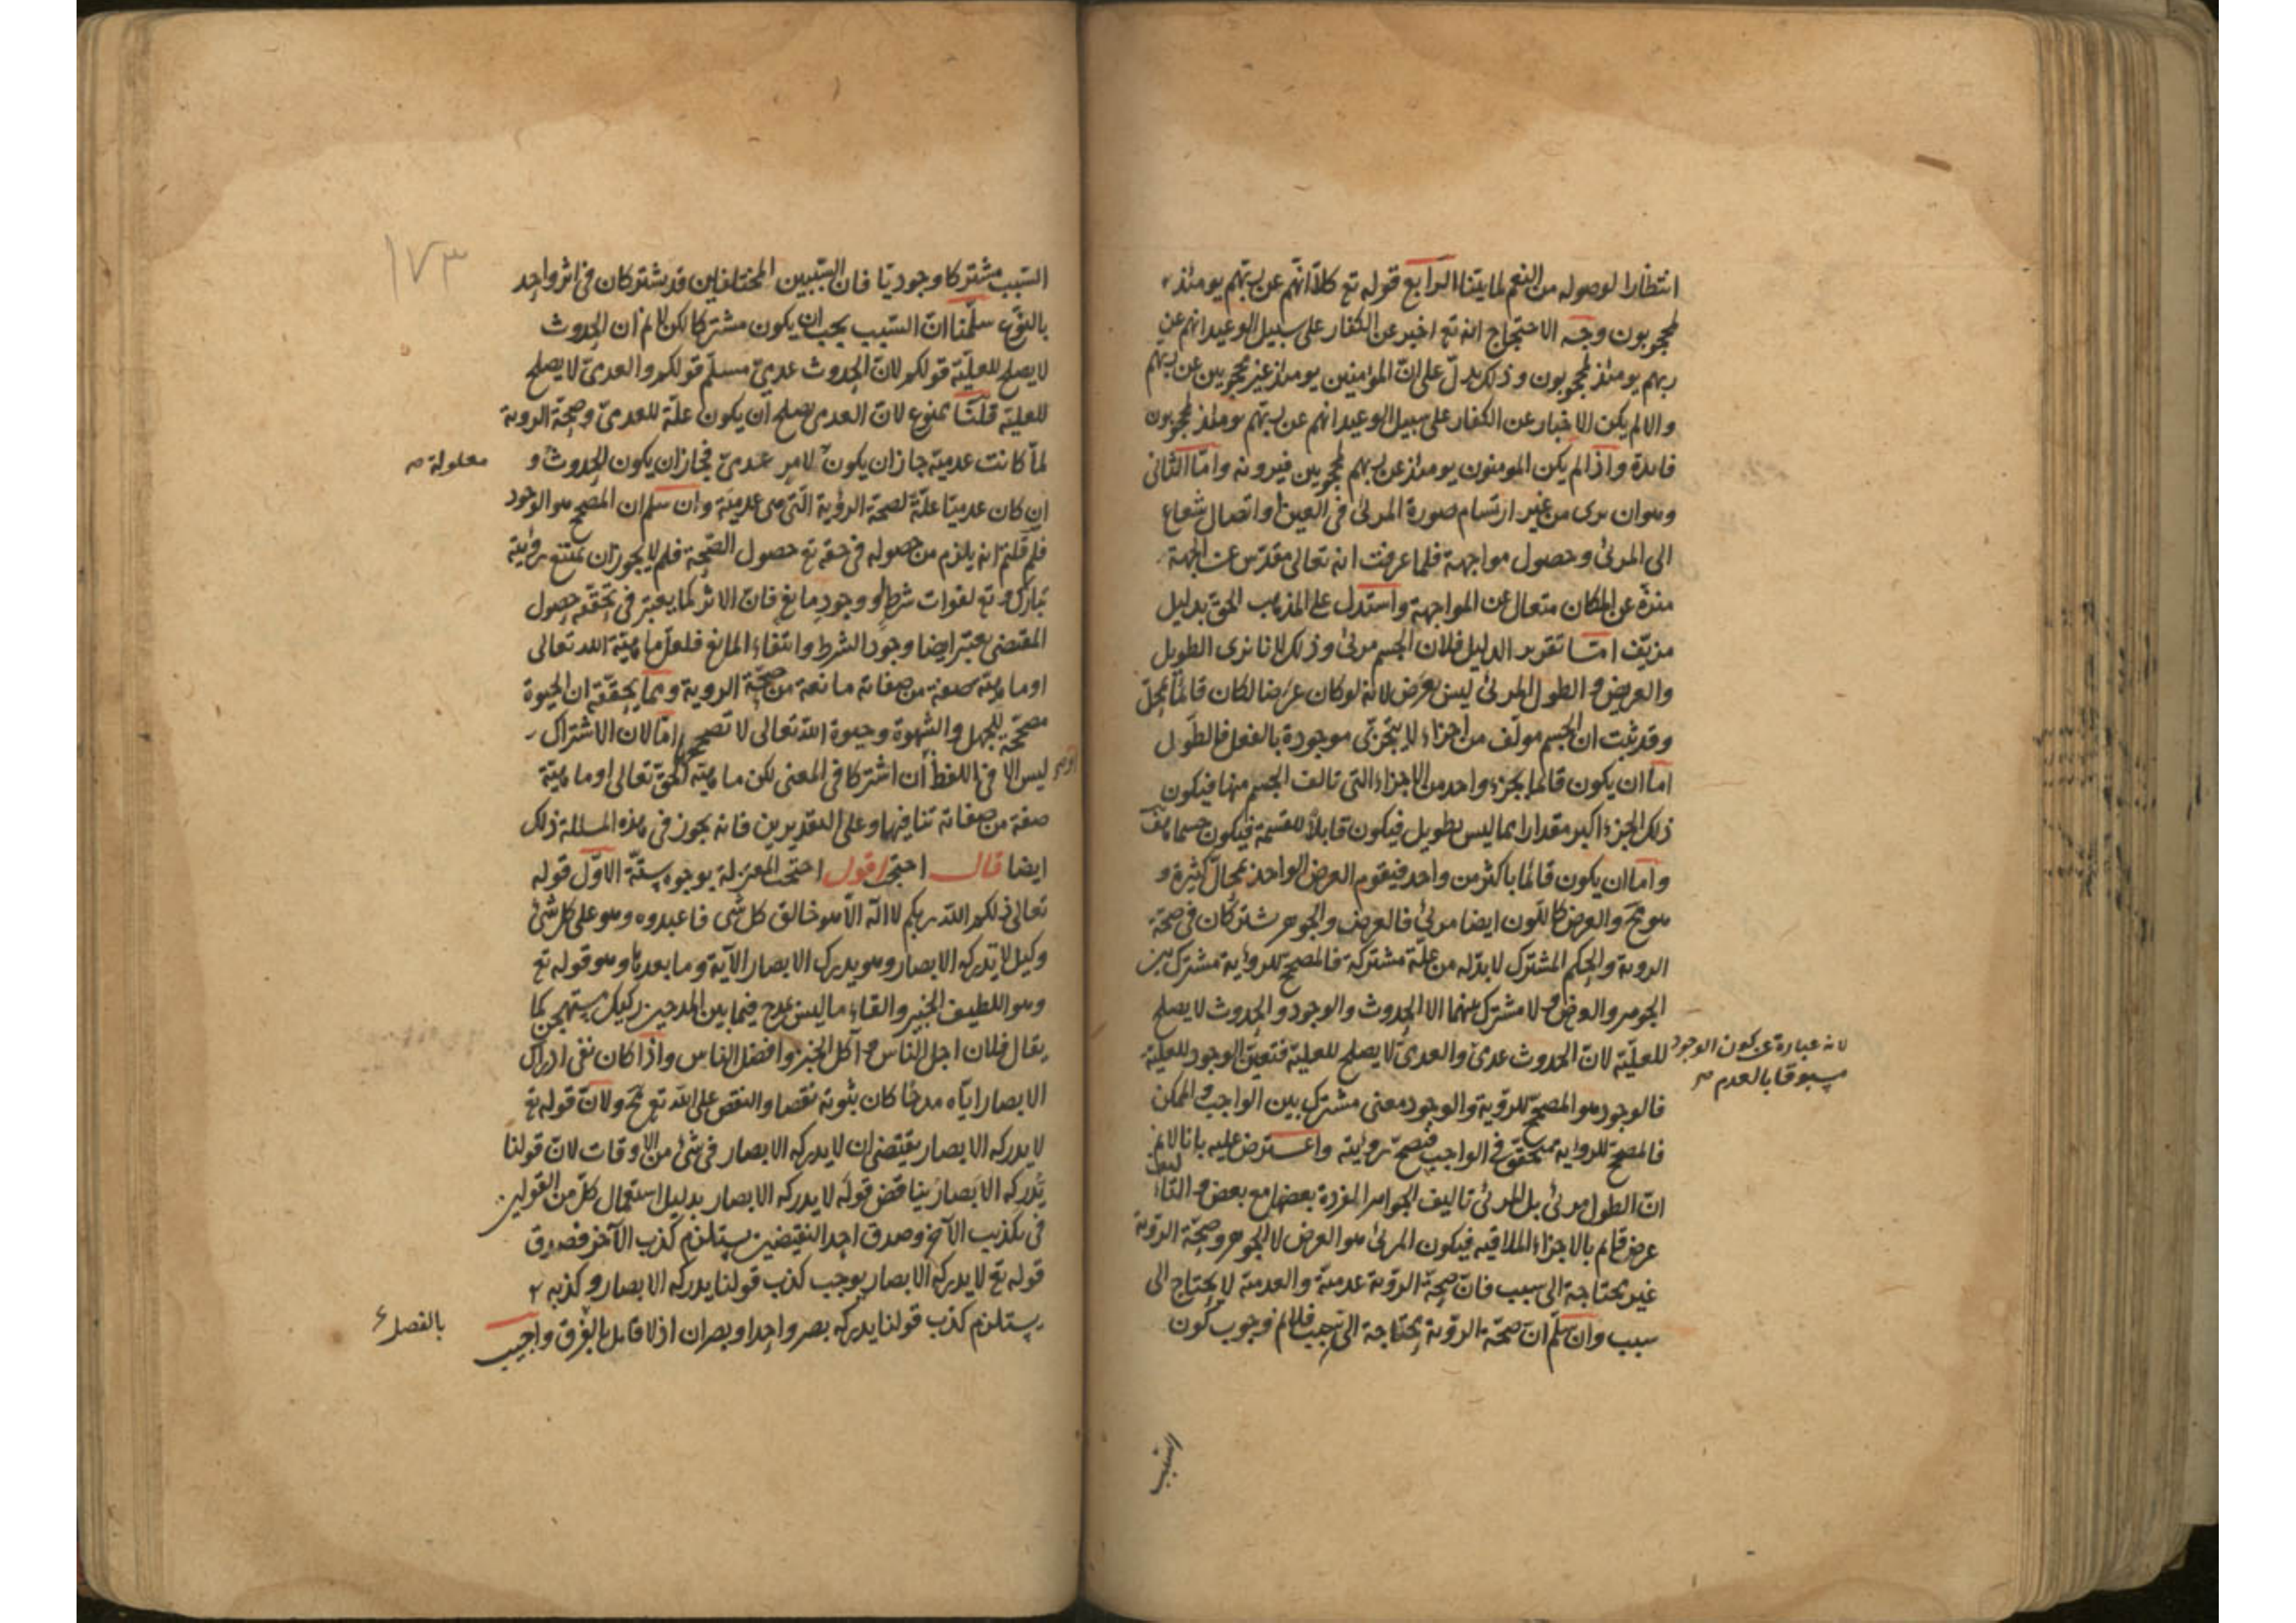 انتظارا لوصوله من النعم لما بيّنا الرابع قوله تع كلا انهم عن ربهم يومئذ
لمحجوبون وجه الاحتجاج انه تع اخبر عن الكفار على سبيل الوعيد انهم عن
ربهم يومئذ لمحجوبون وذلك يدلّ على انّ المؤمنين يومئذ غير محجوبين عن ربهم
والا لم يكن للاخبار عن الكفار على سبيل الوعيد انهم عن ربهم يومئذ لمحجوبون
فائدة واذا لم يكن المومنون يومئذ عن ربهم محجوبين فيرونه وامّا الثانى
وهو ان يرى من غير ارتسام صورة المرئى فى العين او اتصال شعاع
الى المرئى وحصول مواجهة فلما عرفت انه تعالى مقدّس عن الجهة
منزّه عن المكان متعال عن المواجهة واستدل على المذهب الحق بدليل
مزيّف امّا تقرير الدليل فلان الجسم مرئى وذلك لانا نرى الطويل
والعريض والطول المرئى ليس بعرض لانه لو كان عرضا لكان قائما بمحلّ
وقد ثبت ان الجسم مولّف من اجزاء لا يتجزى موجودة بالفعل فالطول
اما ان يكون قائما بجزء واحد من الاجزاء التى تالف الجسم منها فيكون
ذلك الجزء اكبر مقدارا مما ليس بطويل فيكون قابلا للقسمة فيكون جسما هف
واما ان يكون قائما باكثر من واحد فيقوم العرض الواحد بمحالّ كثيرة و
هو مح والعرض كاللون ايضا مرئى فالعرض والجوهر يشتركان فى صحة
الروية والحكم المشترك لا بدّ له من علّة مشتركة فالمصحح للرؤية مشترك بين
الجوهر والعرض ولا مشترك بينهما الا الحدوث والوجود والحدوث لا يصلح
للعليّة لانّ الحدوث عدمىّ والعدمىّ لا يصلح للعلية فتعيّن الوجود للعلية
لانه عبارة عن كون الوجود
مسبوقا بالعدم صح
فالوجود هو المصحح للرؤية والوجود معنى مشترك بين الواجب والممكن
فالمصحح للرؤية متحقق فى الواجب فتصح رؤيته واعترض عليه بانا لا نم
انّ الطول مرئى بل المرئى تاليف الجواهر المفردة بعضها مع بعض والتاليف
عرض قائم بالاجزاء المتلاقيه فيكون المرئى هو العرض لا الجوهر وصحّة الرؤية
غير محتاجة الى سبب فانّ صحة الرؤية عدمية والعدمية لا يحتاج الى
سبب وان سلّم انّ صحّة الرؤية محتاجة الى سبب فلا نم وجوب كون
السّبب
١٧٣
السّبب مشتركا وجوديّا فان السّببين المختلفين قد يشتركان فى اثر واحد
بالنوع سلّمنا انّ السّبب يجب ان يكون مشتركا لكن لا نم ان الحدوث
لا يصلح للعليّة قولكم لانّ الحدوث عدمىّ مسلّم قولكم والعدمىّ لا يصلح
للعلية قلنا ممنوع لانّ العدمى يصلح ان يكون علّة للعدمىّ وصحّة الروية
لمّا كانت عدميّة جاز ان يكون لامر عدمىّ فجاز ان يكون الحدوث و
معلولة صح
ان كان عدميّا علّة لصحة الرؤية الّتى هى عدميّة وان سلم ان المصحح هو الوجود
فلم قلتم انه يلزم من حصوله فى حقه تع حصول الصّحة فلم لا يجوز ان يمتنع رؤيته
تبارك وتع لفوات شرط او وجود مانع فانّ الاثر كما يعتبر فى تحققه حصول
المقتضى يعتبر ايضا وجود الشرط وانتفاء المانع فلعلّ ماهيّة الله تعالى
او ماهية صفة من صفاته مانعة من صحّة الروية ومما يحقّقه ان الحيوة
مصحّحة للجهل والشهوة وحيوة الله تعالى لا تصححهما امّا لان الاشتراك
ليس الا فى اللفظ او ان اشتركا فى المعنى لكن ماهيّة الحقّ تعالى او ماهيّة
صفة من صفاته تنافيهما وعلى التقديرين فانه يجوز فى هذه المسئلة ذلك
ايضا قال احتجّت اقول احتجّت المعتزلة بوجوه ستّة الاوّل قوله
تعالى ذلكم الله ربكم لا اله الّا هو خالق كل شى فاعبدوه وهو على كل شئ
وكيل لا تدركه الابصار وهو يدرك الابصار الآية وما بعدها وهو قوله تع
وهو اللطيف الخبير والقاء ما ليس بمدح فيما بين المدحين ركيك مستهجن كما
يقال فلان اجل الناس وآكل الخبز وافضل الناس واذا كان نفى ادراك
الابصار ايّاه مدحا كان ثبوته نقصا والنقص على الله تع مح ولانّ قوله تع
لا يدركه الابصار يقتضى ان لا يدركه الابصار فى شئ من الاوقات لانّ قولنا
يدركه الابصار يناقض قوله لا يدركه الابصار بدليل استعمال كلّ من القولين
فى تكذيب الآخر وصدق احد النقيضين يستلزم كذب الآخر فصدق
قوله تع لا يدركه الابصار يوجب كذب قولنا يدركه الابصار وكذبه
يستلزم كذب قولنا يدركه بصر واحد او بصران اذ لا قابل بالفرق واجيب
بالفصل